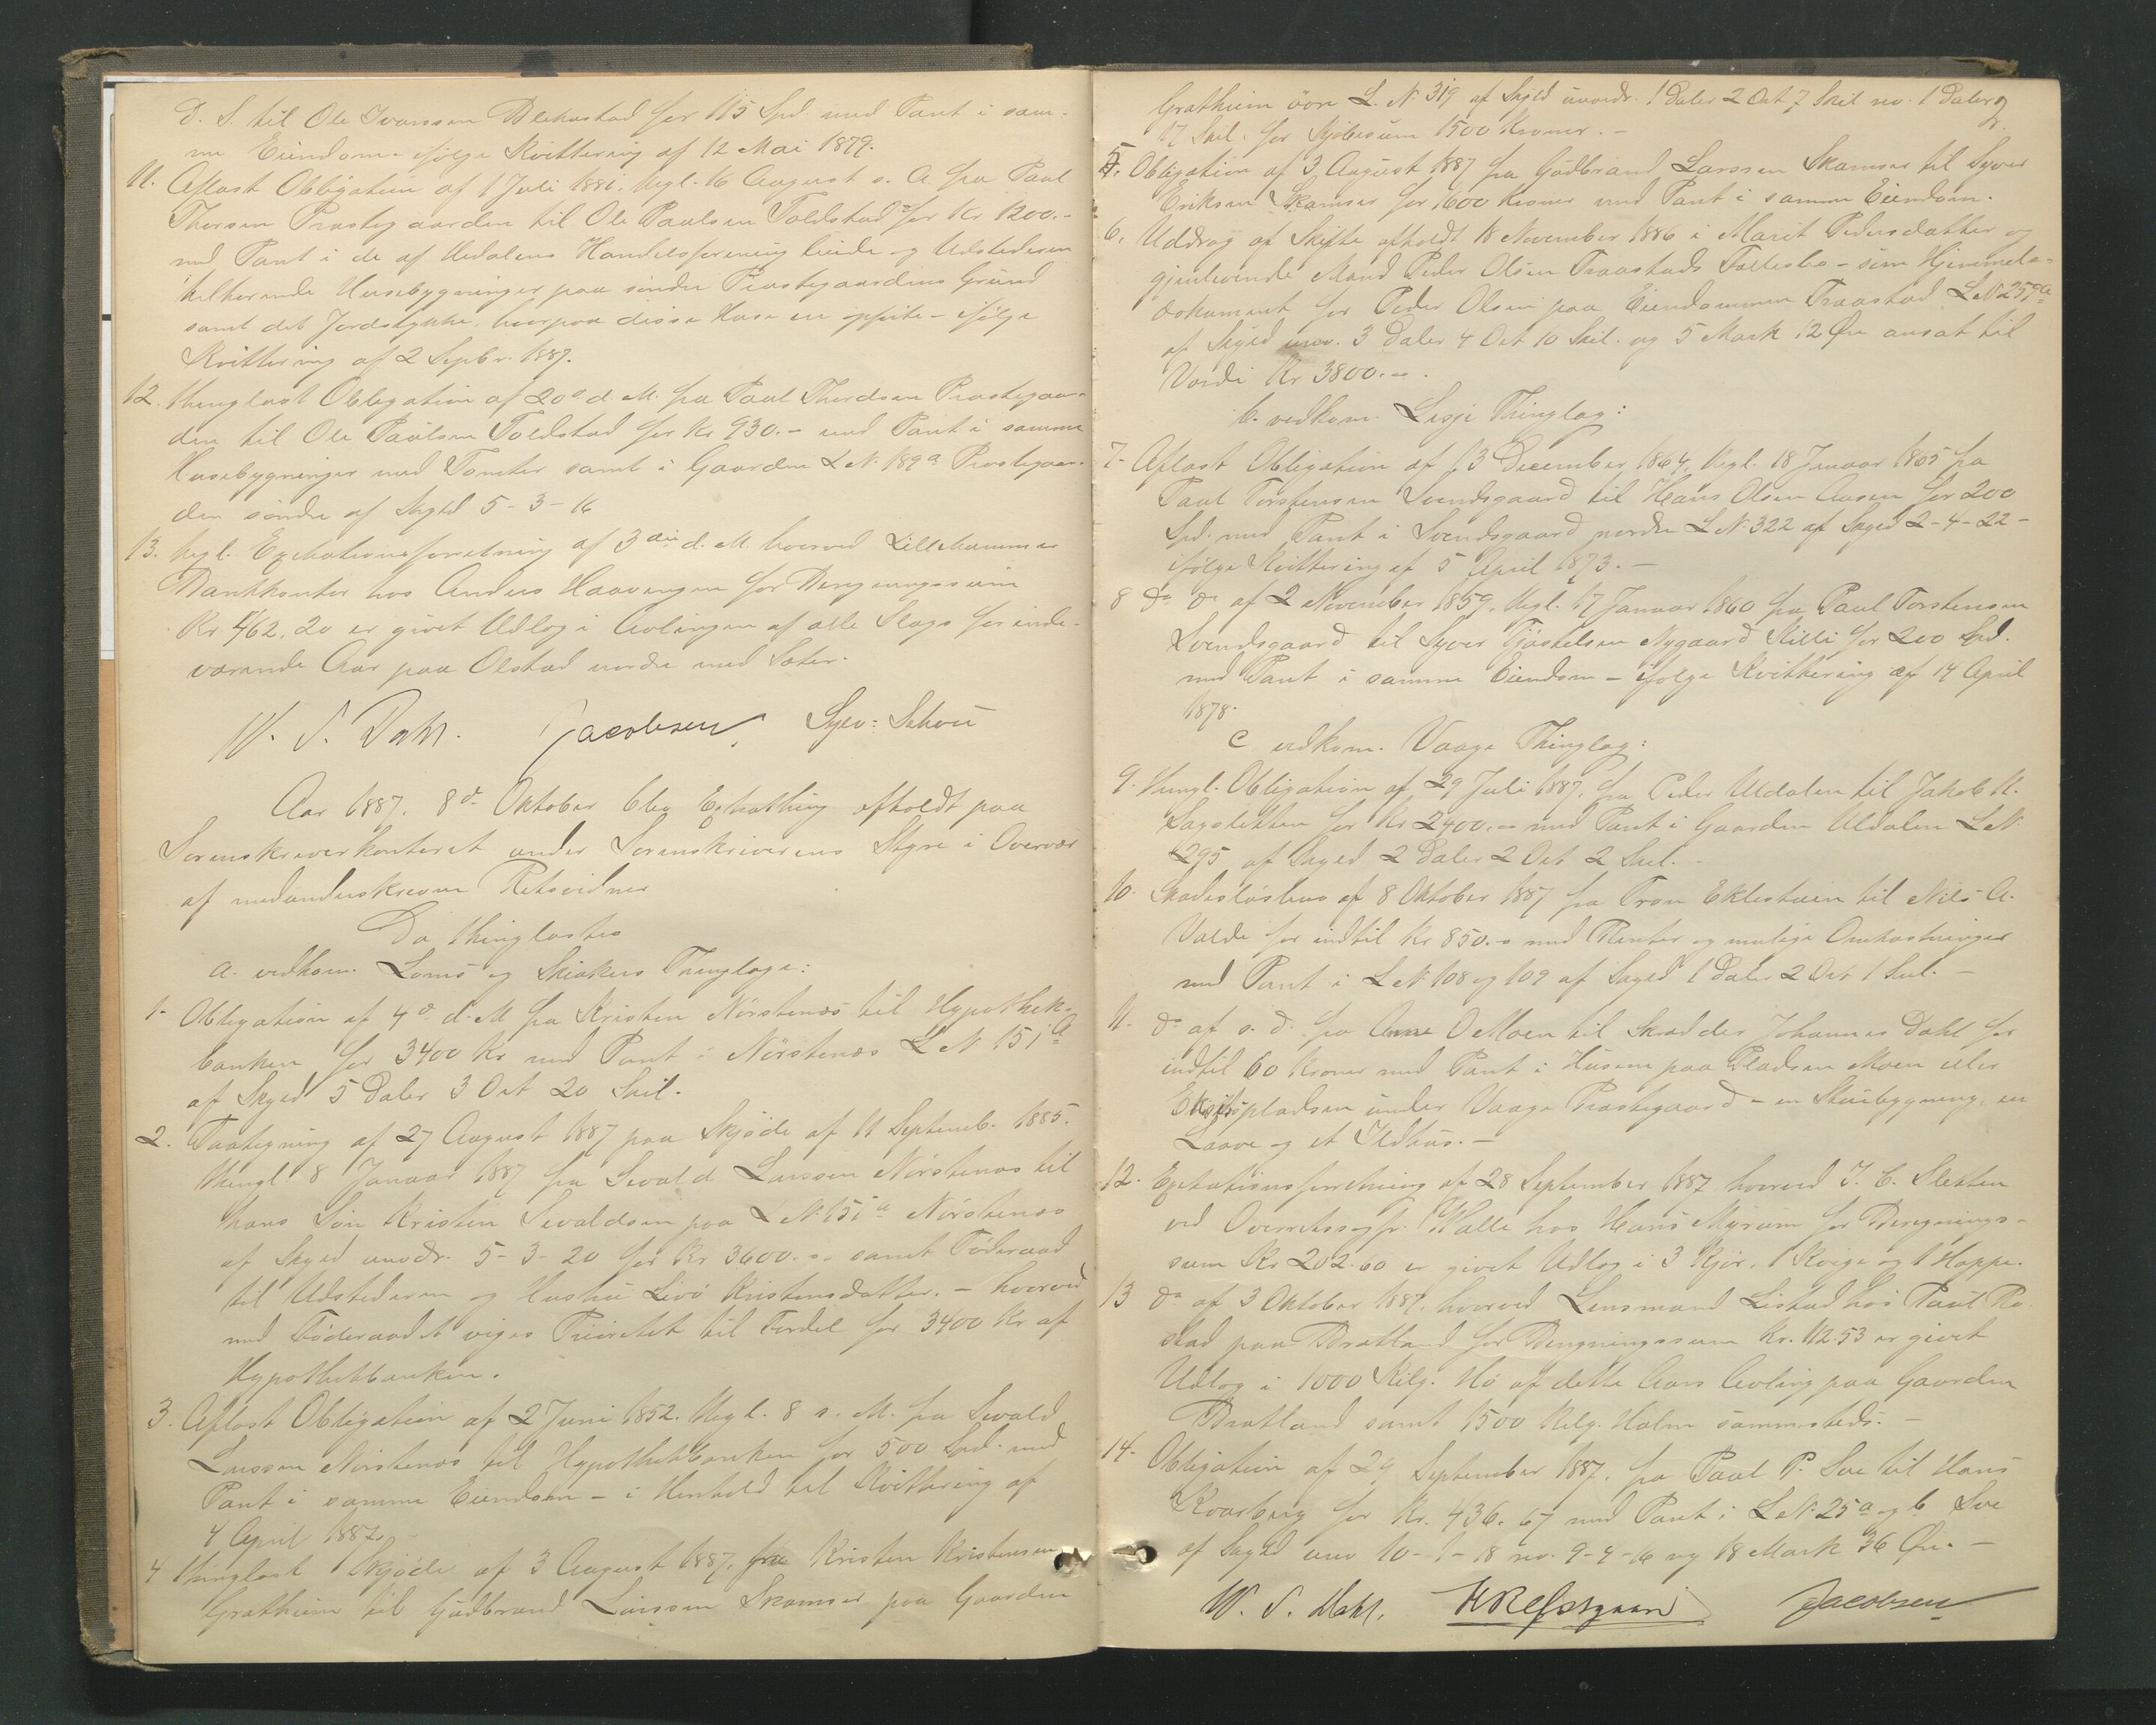 D. S. til Ole Ivarssen Blekastad for 115 Spd. med Pant i sam-
me Eiendom ifølge Kvittering af 12 Mai 1879.
11. Aflæst Obligation af 1 Juli 1881, thgl. 16 August s. A. fra Paul
Thorsen Præstegaarden til Ole Paulsen Toldstad for Kr 1200.-
med Pant i de af Hedalens Handelsforening leiede og Udstederen
tilhørende Husebygninger paa søndre Præstegaardens Grund
samt det Jordstykke, hvorpaa disse Huse er opsatte - ifølge
Kvittering af 2 Septbr. 1887.
12. thinglæst Obligation af 20de d. M. fra Paul Thordsen Præstegaar-
den til Ole Paulsen Toldstad for Kr 930.- med Pant i samme
Husebygninger med Tomter samt i Gaarden L.N. 189a Præstegaar-
den søndre af Skyld 5-3-16
13. thgl. Exekutionsforretning af 3die d. M. hvorved Lillehammer
Bankkontor hos Anders Haavengen for Beregningssum
Kr 462,20 er givet Udlæg i Avlingen af alle Slags for inde-
værende Aar paa Olstad nordre med Sæter.
W. S. Dahl. Jacobsen, Sylv: Schou
Aar 1887. 8de Oktober blev Extrathing afholdt paa
Sorenskriverkontoret under Sorenskriverens Styre i Overvær
af medunderskrevne Retsvidner
Da thinglæstes
a. vedkom. Loms og Skiakers Thinglage:
1. Obligation af 4de d. M fra Kristen Nörstenæs til Hypothek-
banken for 3400 Kr med Pant i Nörstenæs L.N. 151a
af Skyld 5 Daler 3 Ort 20 Skil.
2. Paategning af 27 August 1887 paa Skjöde af 11 Septemb. 1885.
thingl. 8 Januar 1887 fra Sevald Larssen Nörstenæs til
hans Sön Kristen Sevaldsen paa L.N. 151a Nörstenæs
af Skyld uvdr. 5-3-20 for Kr 3600.- samt Föderaad
til Udstederen og Hustru Livö Kristensdatter. - hvorved
med Föderaadet viges Prioritet til Fordel for 3400 Kr af
Hypothekbanken.
3. Aflæst Obligation af 2 Juni 1852. thgl. 8 s. M. fra Sevald
Larssen Nörstenæs til Hypothekbanken for 500 Spd. med
Pant i samme Eiendom - i Henhold til Kvittering af
4 April 1887.
4 thinglæst Skjöde af 3 August 1887, fra Kristen Kristensen
Grøthem til Gudbrand Larssen Skamsar paa Gaarden
Grøtheim övre L. N. 319 af Skyld uvordr. 1 Daler 2 Ort 7 Skil nv. 1 Daler og
17 Skil. for Kjöbesum 1500 Kroner. -
5. Obligation af 3 August 1887 fra Gudbrand Larssen Skamsar til Syver
Eriksen Skamsar for 1600 Kroner med Pant i samme Eiendom.
6. Uddrag af Skifte afholdt 18 November 1886 i Marit Pedersdatter og
gjenlevende Mand Peder Olsen Traastads Fællesbo - som Hjemmels-
dokument for Peder Olsen paa Eiendommen Traastad L.N. 259a
af Skyld uvv. 3 Daler 4 Ort 10 Skil. og 5 Mark 12 Øre ansat til
Værdi Kr 3800.-.
b. vedkom. Lesje Thinglag:
7. Aflæst Obligation af 13 December 1864, thgl. 18 Januar 1865 fra
Paul Torstensen Svendsgaard til Hans Olsen Aasen for 200
Spd. med Pant i Svendsgaard nordre L.N. 322 af Skyld 2-4-22 -
ifølge Kvittering af 5 April 1873. -
8 do do af 2 November 1859, thgl. 17 Januar 1860 fra Paul Torstensen
Svendsgaard til Syver Tjöstelsen Nygaard Killi for 200 Spd.
med Pant i samme Eiendom - ifølge Kvittering af 14 April
1878.
c vedkom. Vaage Thinglag:
9. thingl. Obligation af 29 Juli 1887. fra Peder Uldalen til Jakob H.
for Kr 2400.- med Pant i Gaarden Uldalen L.N.
295 af Skyld 2 Daler 2 Ort 2 Skil. -
10. Skadeslösbrev af 8 Oktober 1887 fra Tron Eklestuen til Nils A.
Valde for indtil Kr 850.- med Renter og mulige Omkostninger
med Pant i L.N. 108 og 109 af Skyld 1 Daler 2 Ort 1 Skil. -
11. do af s. D. fra Anne O Moen til Skrædder Johannes Dahl for
indtil 60 Kroner med Pant i Husene paa Pladsen Moen eller
under Vaage Præstegaard - en Stuebygning, en
Laave og et Ildhus. -
12. Exekutionsforretning af 28 September 1887 hvorved I. C. Sletten
ved Overretssagfr. Walle hos Hans Myrum for Beregnings-
sum Kr 202.60 er givet Udlæg i 3 Kjör, 1 Kvige og 1 Hoppe.
13 do af 3 Oktober 1887. hvorved Lensmand Listad hos Paul Ro-
stad paa Bratland for Beregningssum Kr. 112.53 er givet
Udlæg i 1000 Kilg. Hö af dette Aars Avling paa Gaarden
Bratland samt 1500 Kilg. Halm sammesteds. -
14. Obligation af 29 September 1887. fra Paul P. Sve til Hans
Kvarberg for Kr. 436.67 med Pant i L.N. 25a og b Sve
af Skyld uvv 10-1-18 nv. 9-4-16 og 18 Mark 36 Øre. -
W. S. Dahl. H Refsgaard Jacobsen